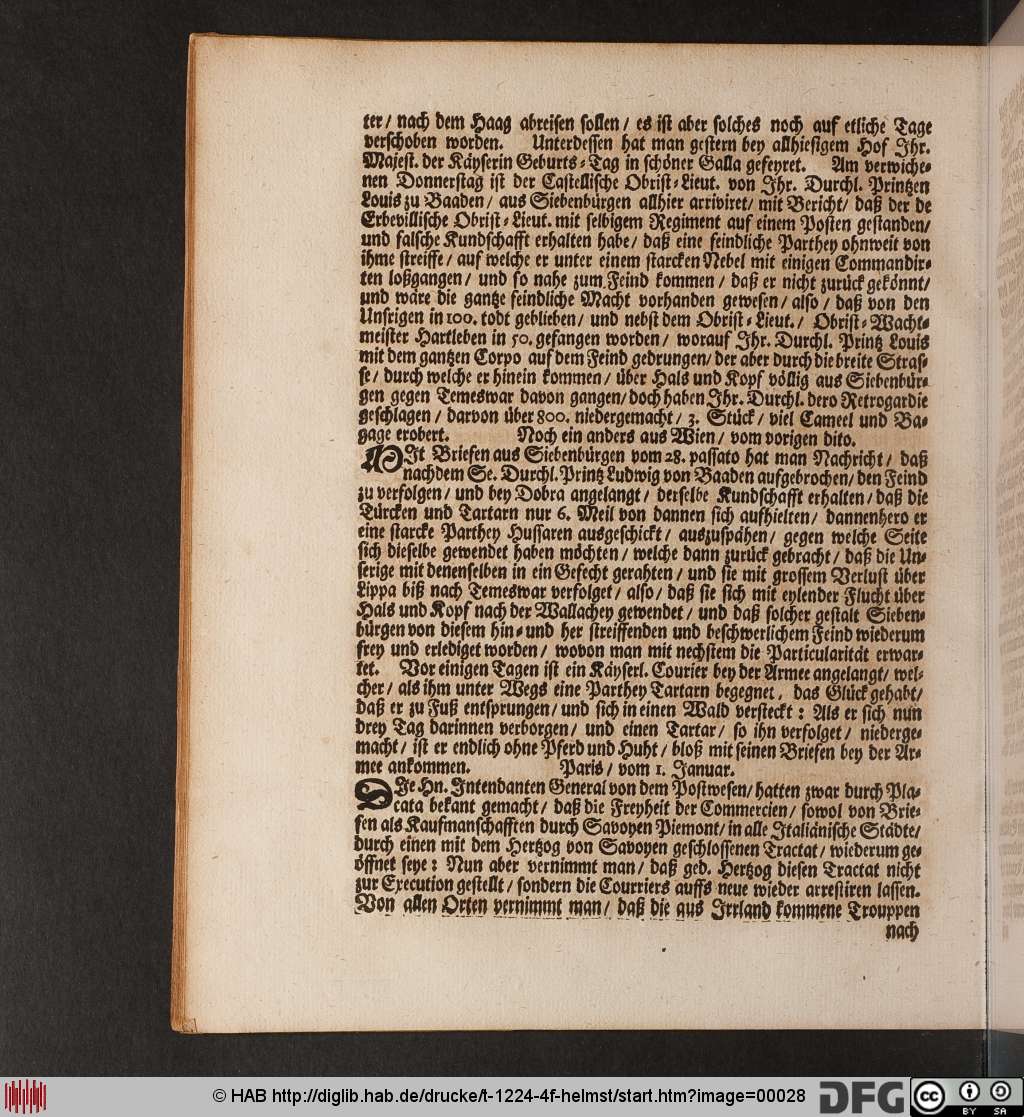 ter / nach dem Haag abreisen sollen / es ist aber solches noch auf etliche Tage
verschoben worden. Unterdessen hat man gestern bey allhiesigem Hof Ihr.
Majest. der Käyserin Geburts-Tag in schöner Galla gefeyret. Am verwiche-
nen Donnerstag ist der Castellische Obrist-Lieut. von Ihr. Durchl. Printzen
Louis zu Baaden / aus Siebenbürgen allhier arriviret / mit Bericht / daß der de
Erbevillische Obrist-Lieut. mit selbigem Regiment auf einem Posten gestanden /
und falsche Kundschafft erhalten habe / daß eine feindliche Parthey ohnweit von
ihme streiffe / auf welche er unter einem starcken Nebel mit einigen Commandir-
ten loßgangen / und so nahe zum Feind kommen / daß er nicht zurück gekönnt /
und wäre die gantze feindliche Macht vorhanden gewesen / also / daß von den
Unsrigen in 100. todt geblieben / und nebst dem Obrist-Lieut. / Obrist-Wacht-
meister Hartleben in 50. gefangen worden / worauf Ihr. Durchl. Printz Louis
mit dem gantzen Corpo auf dem Feind gedrungen / der aber durch die breite Stras-
se / durch welche er hinein kommen / über Hals und Kopf völlig aus Siebenbür-
gen gegen Temeswar davon gangen / doch haben Ihr. Durchl. dero Retrogardie
geschlagen / darvon über 800. niedergemacht / 3. Stück / viel Cameel und Ba-
gage erobert. Noch ein anders aus Wien / vom vorigen dito.
MIt Briefen aus Siebenbürgen vom 28. passato hat man Nachricht / daß
nachdem Se. Durchl. Printz Ludwig von Baaden aufgebrochen / den Feind
zu verfolgen / und bey Dobra angelangt / derselbe Kundschafft erhalten / daß die
Türcken und Tartarn nur 6. Meil von dannen sich aufhielten / dannenhero er
eine starcke Parthey Hussaren ausgeschickt / auszuspähen / gegen welche Seite
sich dieselbe gewendet haben möchten / welche dann zurück gebracht / daß die Un-
serige mit denenselben in ein Gefecht gerahten / und sie mit grossem Verlust über
Lippa biß nach Temeswar verfolget / also / daß sie sich mit eylender Flucht über
Hals und Kopf nach der Wallachey gewendet / und daß solcher gestalt Sieben-
bürgen von diesem hin- und her streiffenden und beschwerlichem Feind wiederum
frey und erlediget worden / wovon man mit nechstem die Particularität erwar-
tet. Vor einigen Tagen ist ein Käyserl. Courier bey der Armee angelangt / wel-
cher / als ihm unter Wegs eine Parthey Tartarn begegnet, das Glück gehabt /
daß er zu Fuß entsprungen / und sich in einen Wald versteckt : Als er sich nun
drey Tag darinnen verborgen / und einen Tartar / so ihn verfolget / niederge-
macht / ist er endlich ohne Pferd und Huht / bloß mit seinen Briefen bey der Ar-
mee ankommen. Paris / vom 1. Januar.
DIe Hn. Intendanten General von dem Postwesen / hatten zwar durch Pla-
cata bekant gemacht / daß die Freyheit der Commercien / sowol von Brie-
fen als Kaufmanschafften durch Savoyen Piemont / in alle Italiänische Städte /
durch einen mit dem Hertzog von Savoyen geschlossenen Tractat / wiederum ge-
öffnet seye : Nun aber vernimmt man / daß ged. Hertzog diesen Tractat nicht
zur Execution gestellt / sondern die Courriers auffs neue wieder arrestiren lassen.
Von allen Orten vernimmt man / daß die aus Irrland kommene Trouppen
nach
© HAB http://diglib.hab.de/drucke/t-1224-4f-helmst/start.htm?image=00028
DFG
cc
BY SA